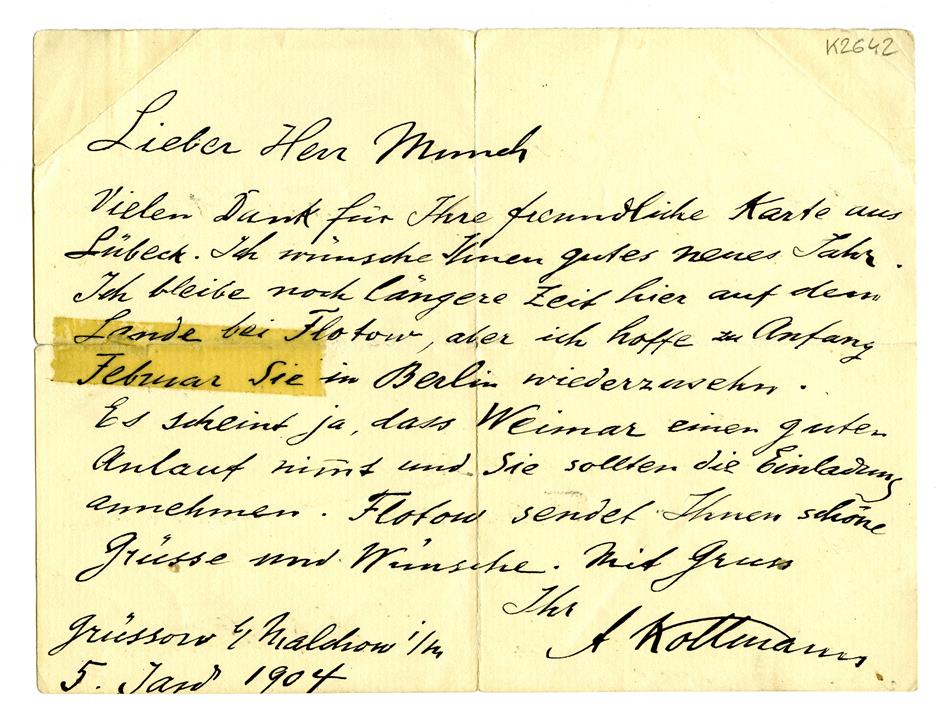 K2642
Lieber Herr Munch
Vielen Dank für Ihre freundliche Karte aus
Lübeck. Ich wünsche Ihnen gutes neues Jahr.
Ich bleibe noch längere Zeit hier auf dem
Lande bei Flotow, aber ich hoffe zu Anfang
Februar Sie in Berlin wiederzusehn.
Es scheint ja, dass Weimar einen guten
Anlauf nim̄t und Sie sollten die Einladung
annehmen. Flotow sendet Ihnen schöne
Grüsse und Wünsche. Mit Gruss
Ihr
A Kollmann
Grüssow b/ Malchow i/m
5. 1904